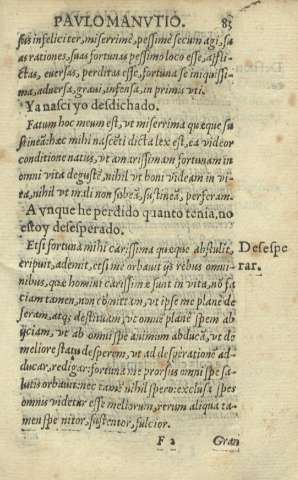 PAVLO MANVTIO. 83
suis infeliciter, miserrimè, pessimè secum agi, su
as rationes, suas fortunas pessimo loco esse, afflī-
ctas, euersas, perditas esse, fortuna se iniquissi-
ma, aduersa, graui, infensa, in primis vti.
Ya nasci yo desdichado.
Fatum hoc meum est, vt miserrima quæque su
stineā: hæc mihi nascēti dicta lex est, ea videor
conditione natus, vt amarissimam fortunam in
omni vita degustē, nihil vt boni videam in vi-
ta, nihil vt mali non sobeā, sustineā, perferam.
A vnque he perdido quanto tenia, no
estoy desesperado.
Etsi fortuna mihi carissima quæque abstulit,
eripuit, ademit, etsi me orbauit ijs rebus omni-
nibus, quæ homini carissimæ sunt in vita, nō fa
ciam tamen, non cōmittam, vt ipse me planè de
seram, atq; destituam, vt omnē planè spem ab
ijciam, vt ab omni spe animum abducā, vt de
meliore statu desperem, vt ad desperationē ad-
ducar, redigar: fortuna me prorsus omni spe sa-
lutis orbaut: nec tamē nihil spero: exclusa spes
omnis videtur esse meliorum, rerum aliqua ta-
men spe nitor, sustentor, fulcior.
Desespe
rar.
F 2 Gran